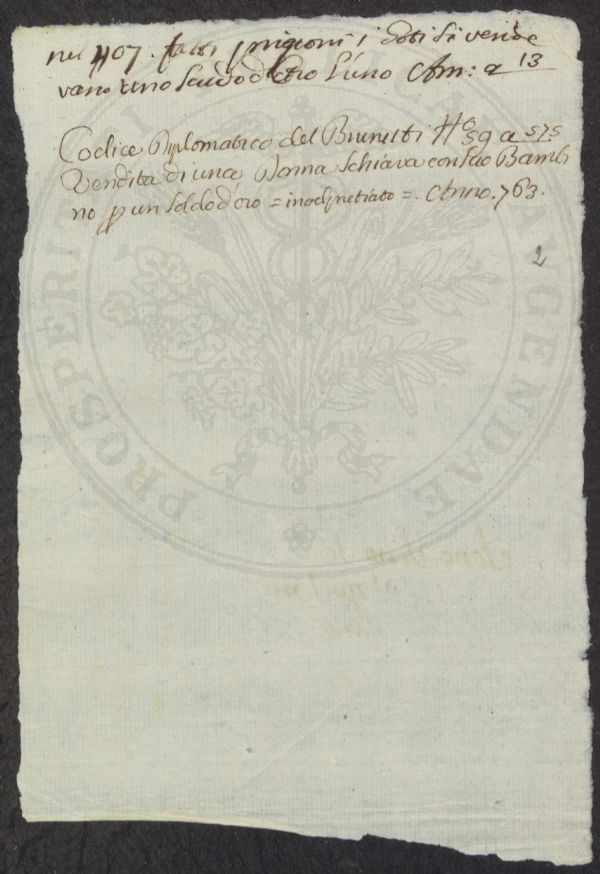 nel 407. fatti prigioni i Goti si vende
vano uno scudo d'oro l'uno Am: a 13
Codice Diplomatico del Brunetti No 59 a 575
Vendita di una Donna Schiava con suo Bambi
no p un soldo d'oro = inadequetiato =. Anno. 763.
2
PROSPERITATI AUGENDAE